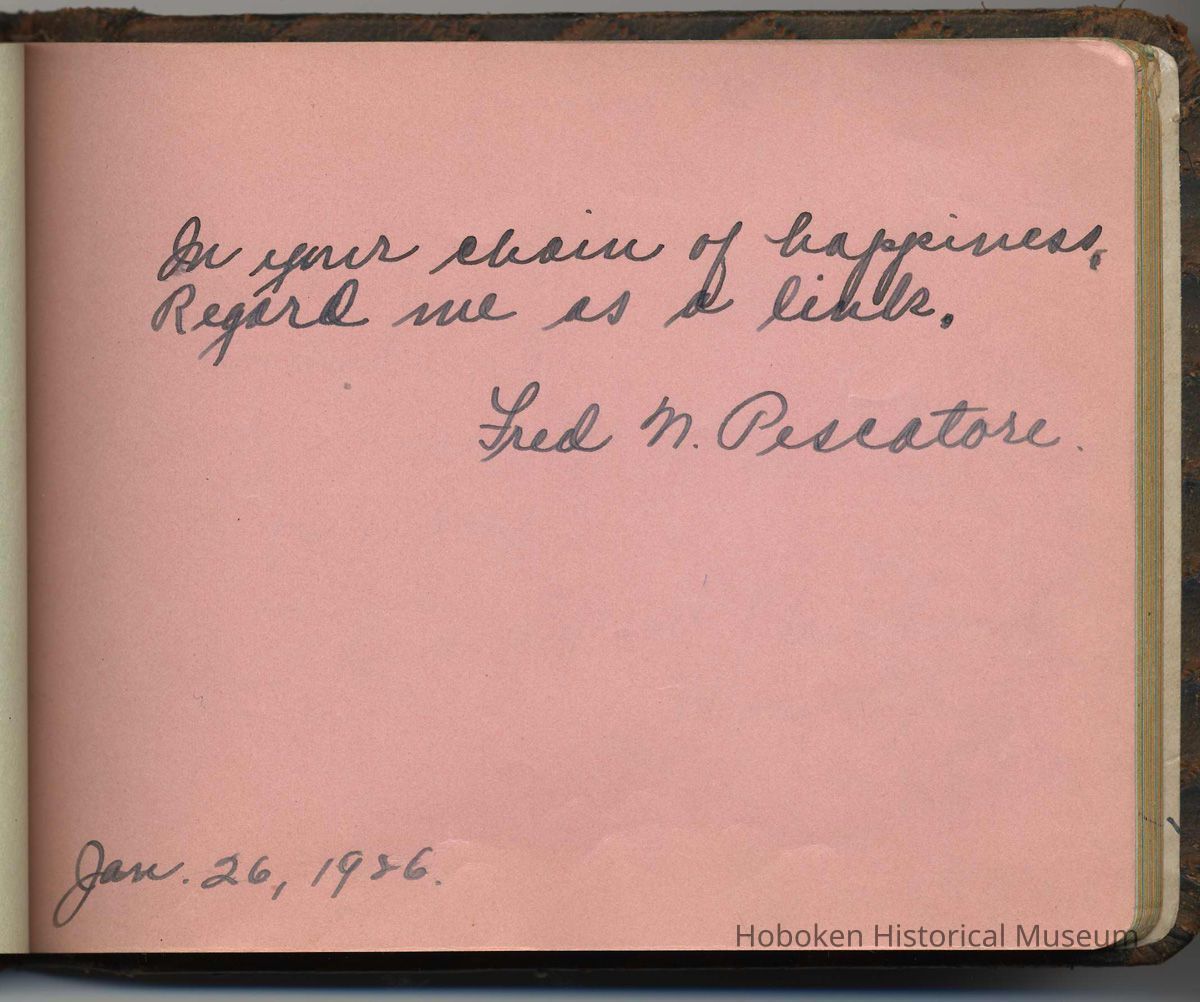 In your chain of happiness,
Regard me as a link.
Fred N. Pescatore.
Jan. 26, 1926.
Hoboken Historical Museum